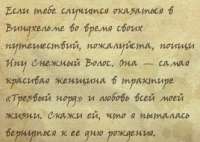 Если тебе случится оказаться в
Виндхельме во время своих
путешествий, пожалуйста, поищи
Ину Снежный Волос. Она — самая
красивая женщина в трактире
«Трезвый норд» и любовь всей моей
жизни. Скажи ей, что я пыталась
вернуться к ее дню рождения.